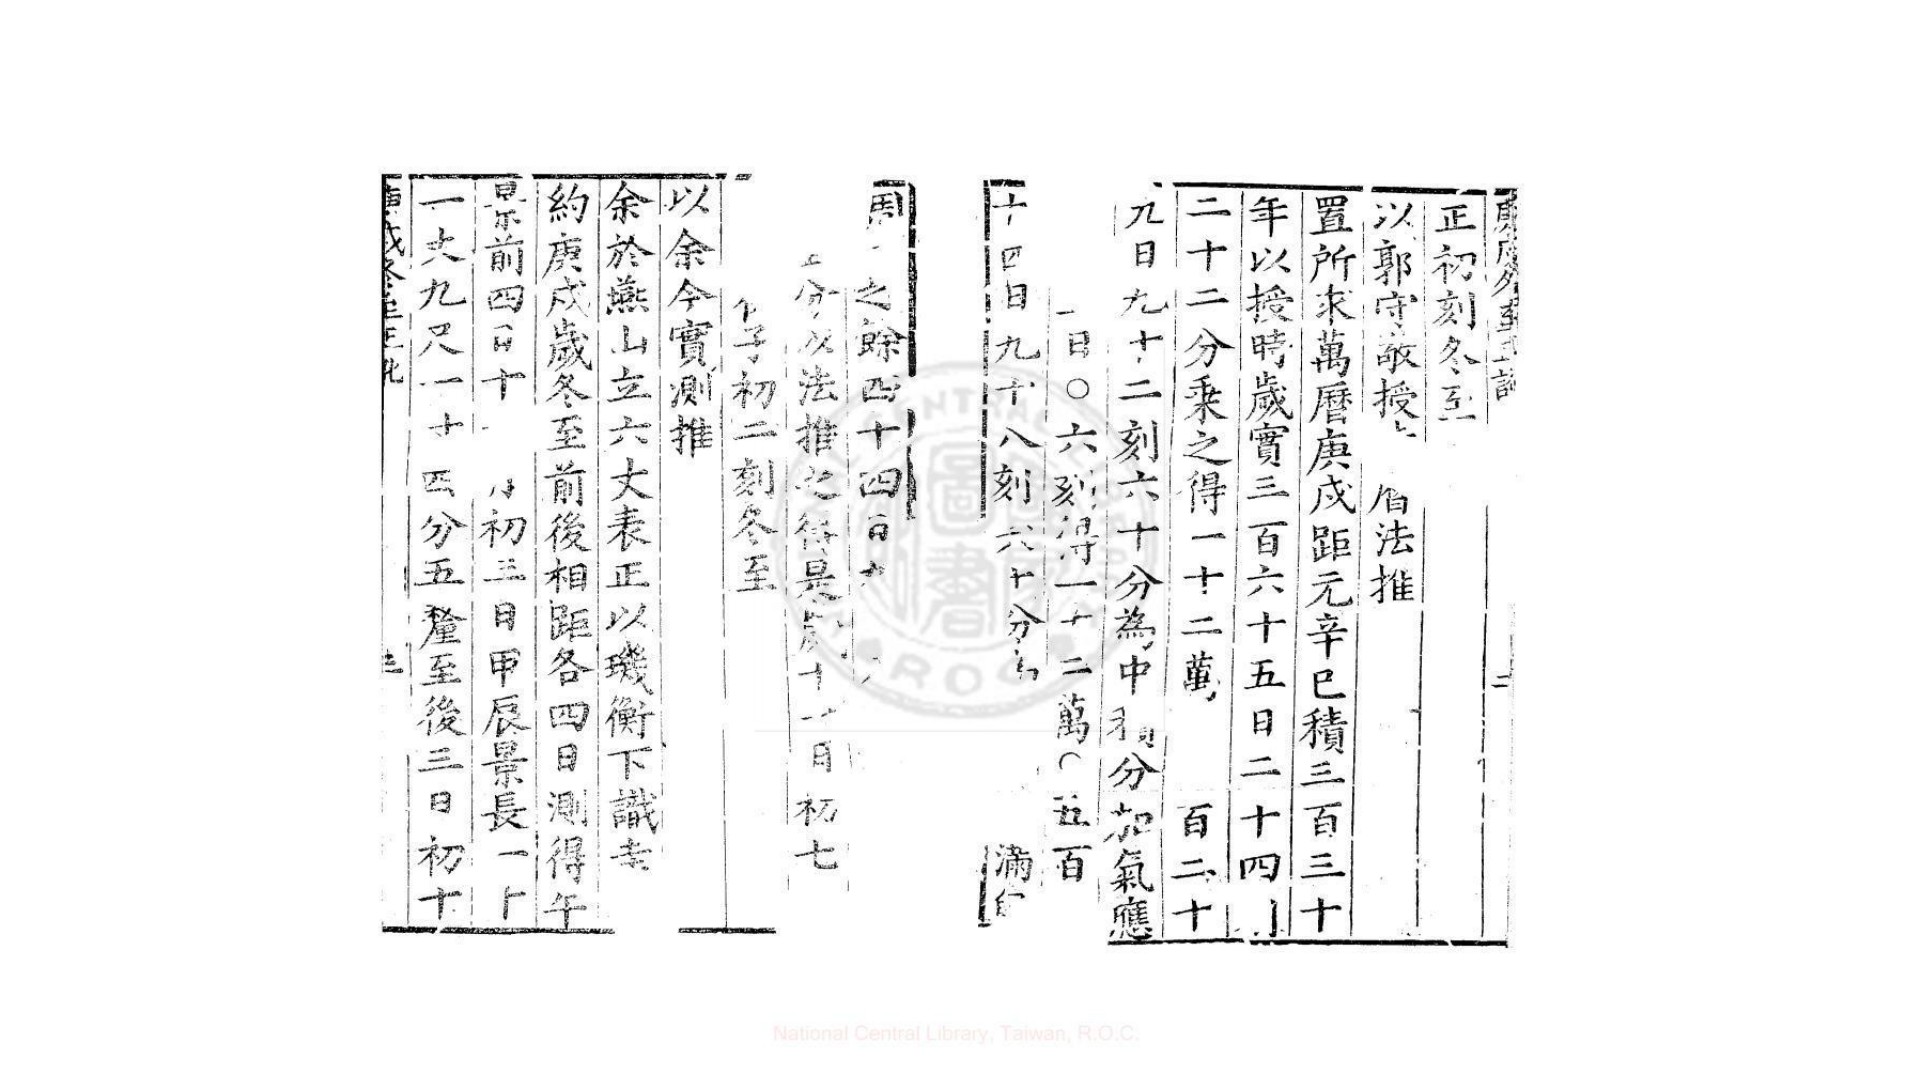 正初刻冬至
以郭守敬授 法推
置所求萬曆庚戍距元辛巳積三百三十
年以授時歲實三百六十五日二十四
二十二分乗之得一十二萬 百二十
九日九十二刻六十分為中積分加氣應
日〇六刻得一十二萬〇五百
十四日九十八刻六十分 滿
周 之餘四十四日
分以法推之得是歲十一月初七
子初二刻冬至
以余今實測推
余於燕山立六丈表正以璣衡下識圭
約庚戍歲冬至前後相距各四日測得午
景前四日十 月初三日甲辰景長一十
一丈九尺一寸四分五釐至後三日初十
庚戍冬至正訛
三
National Central Library, Taiwan, R.O.C.